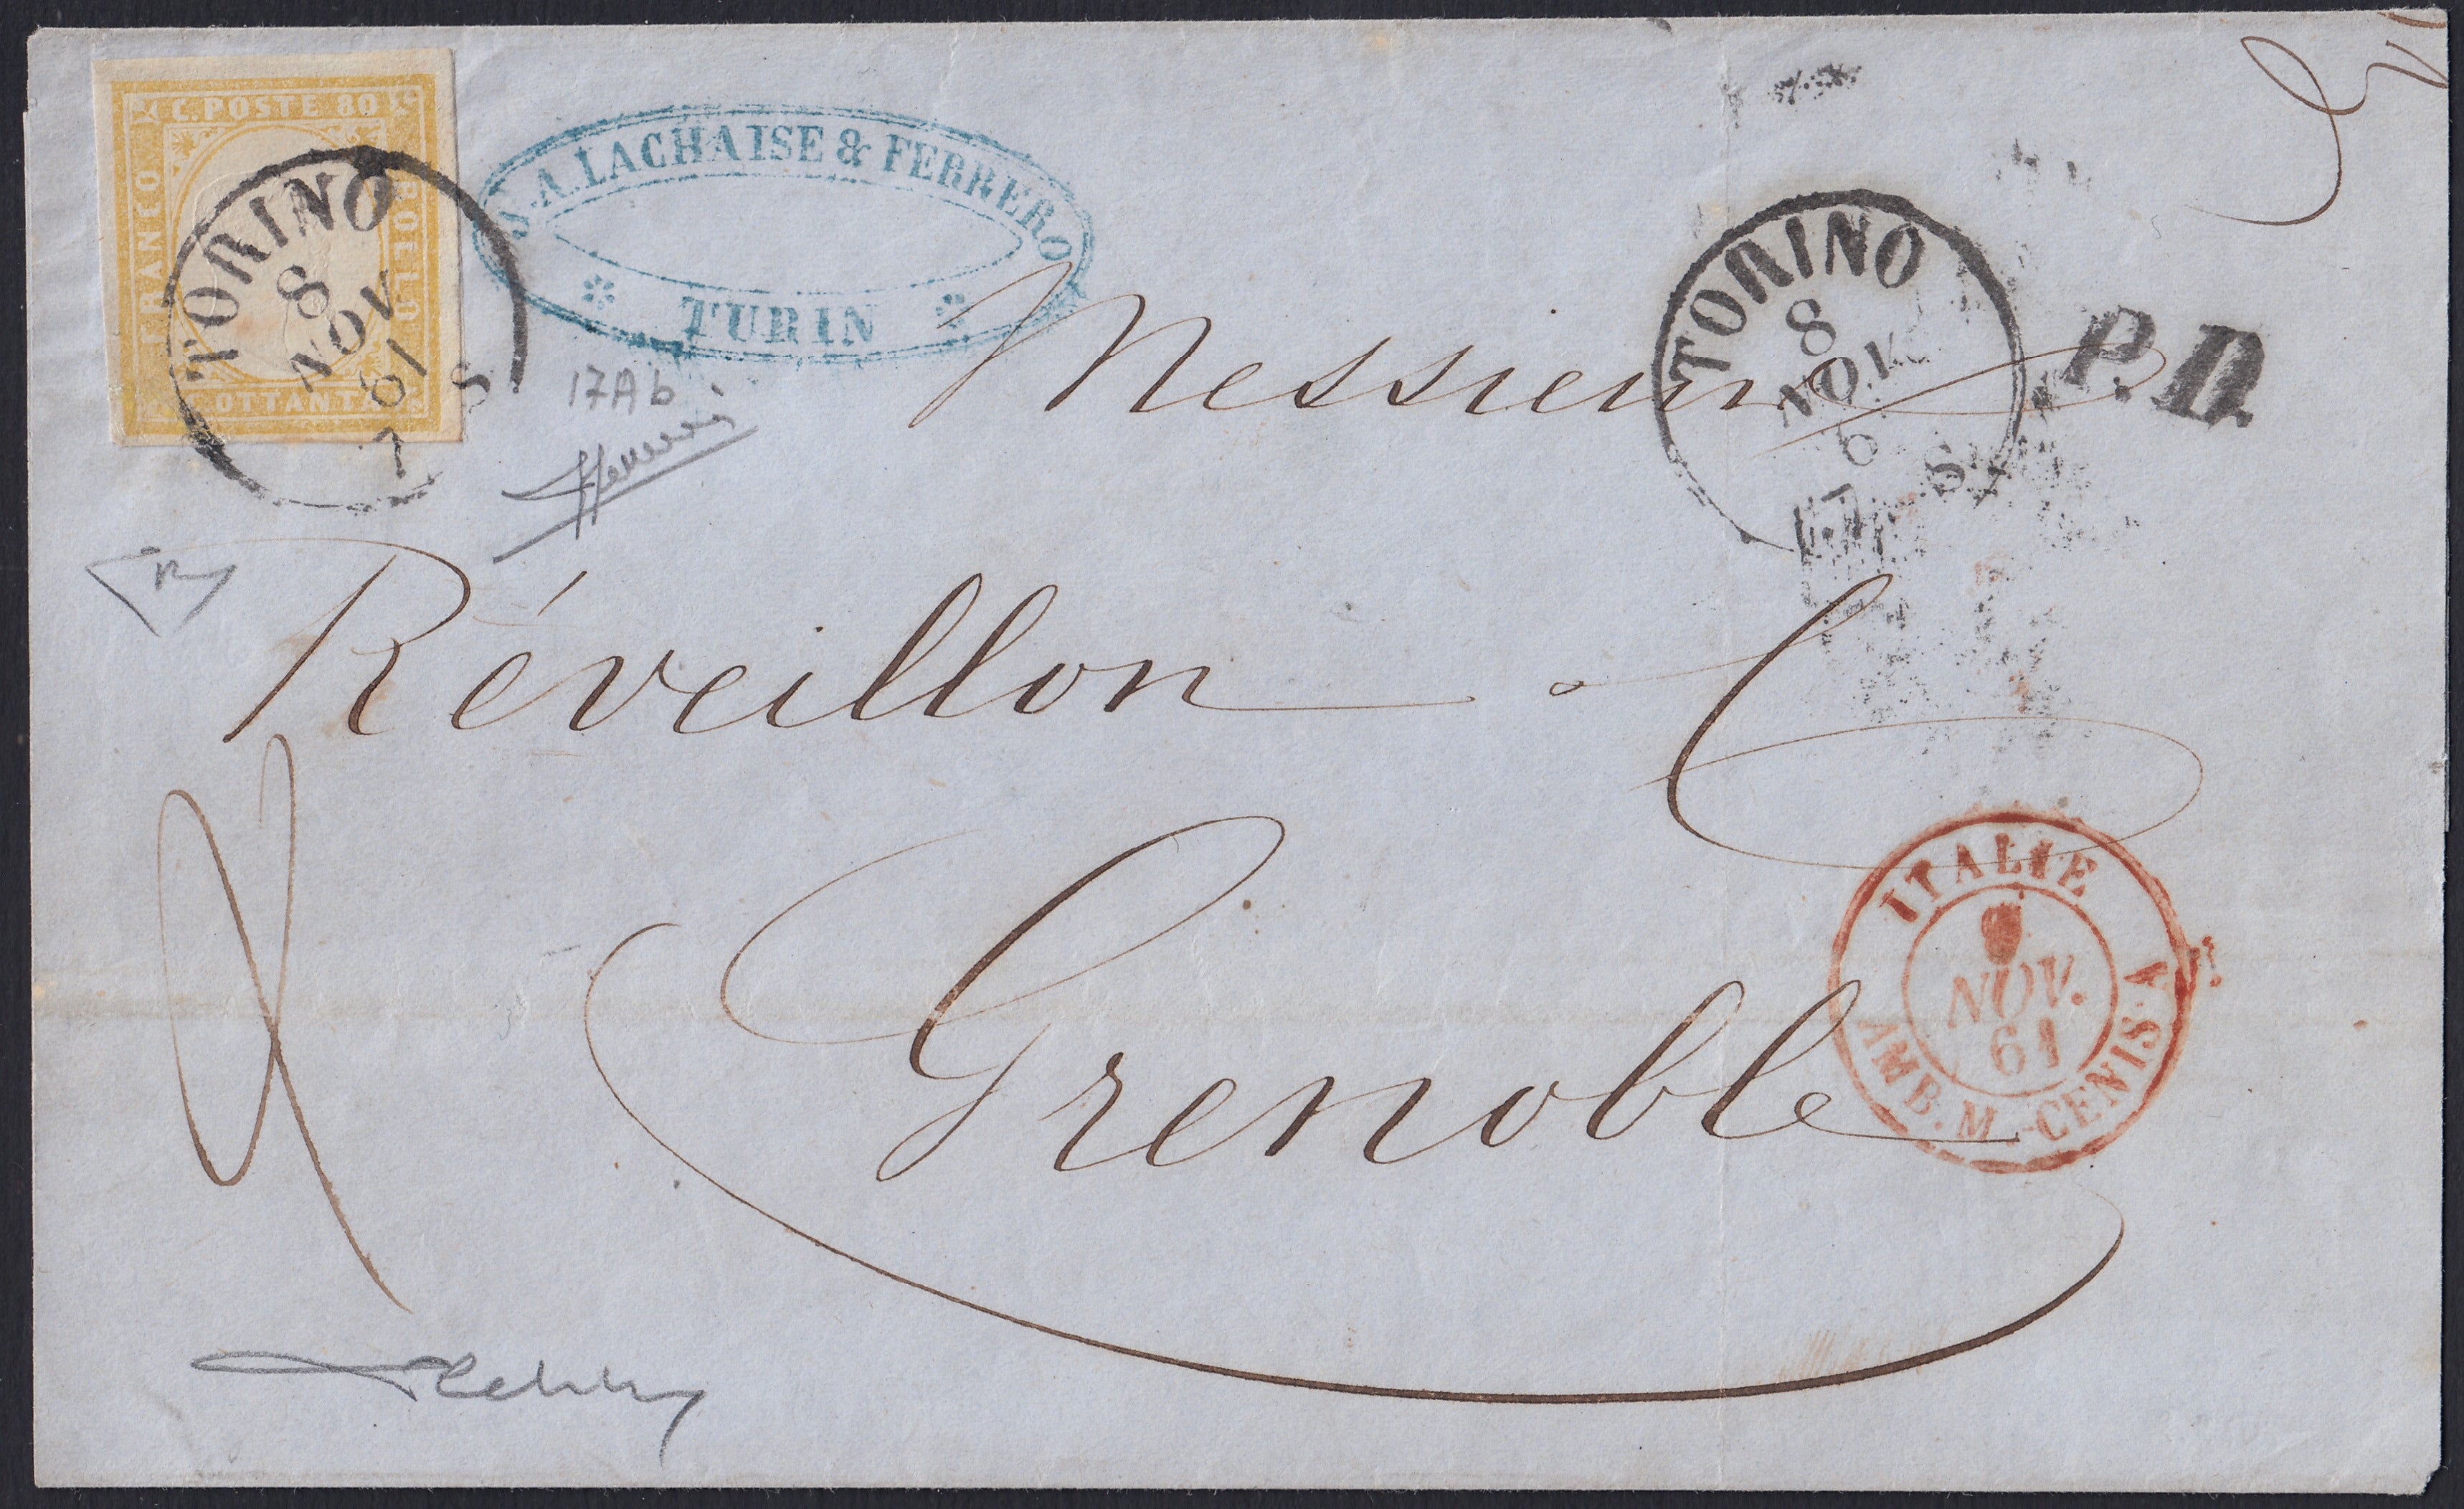 C. POSTE 80
FRANCO
BOLLO
C. OTTANTA
TORINO
8
NOV
61
7 S
S. A. LACHAISE & FERRERO
TURIN
17Ab
TORINO
8
NOV
6
7 S
P.D.
Messieurs
Réveillon
Grenoble
ITALIE
NOV.
61
AMB. M.-CENIS A